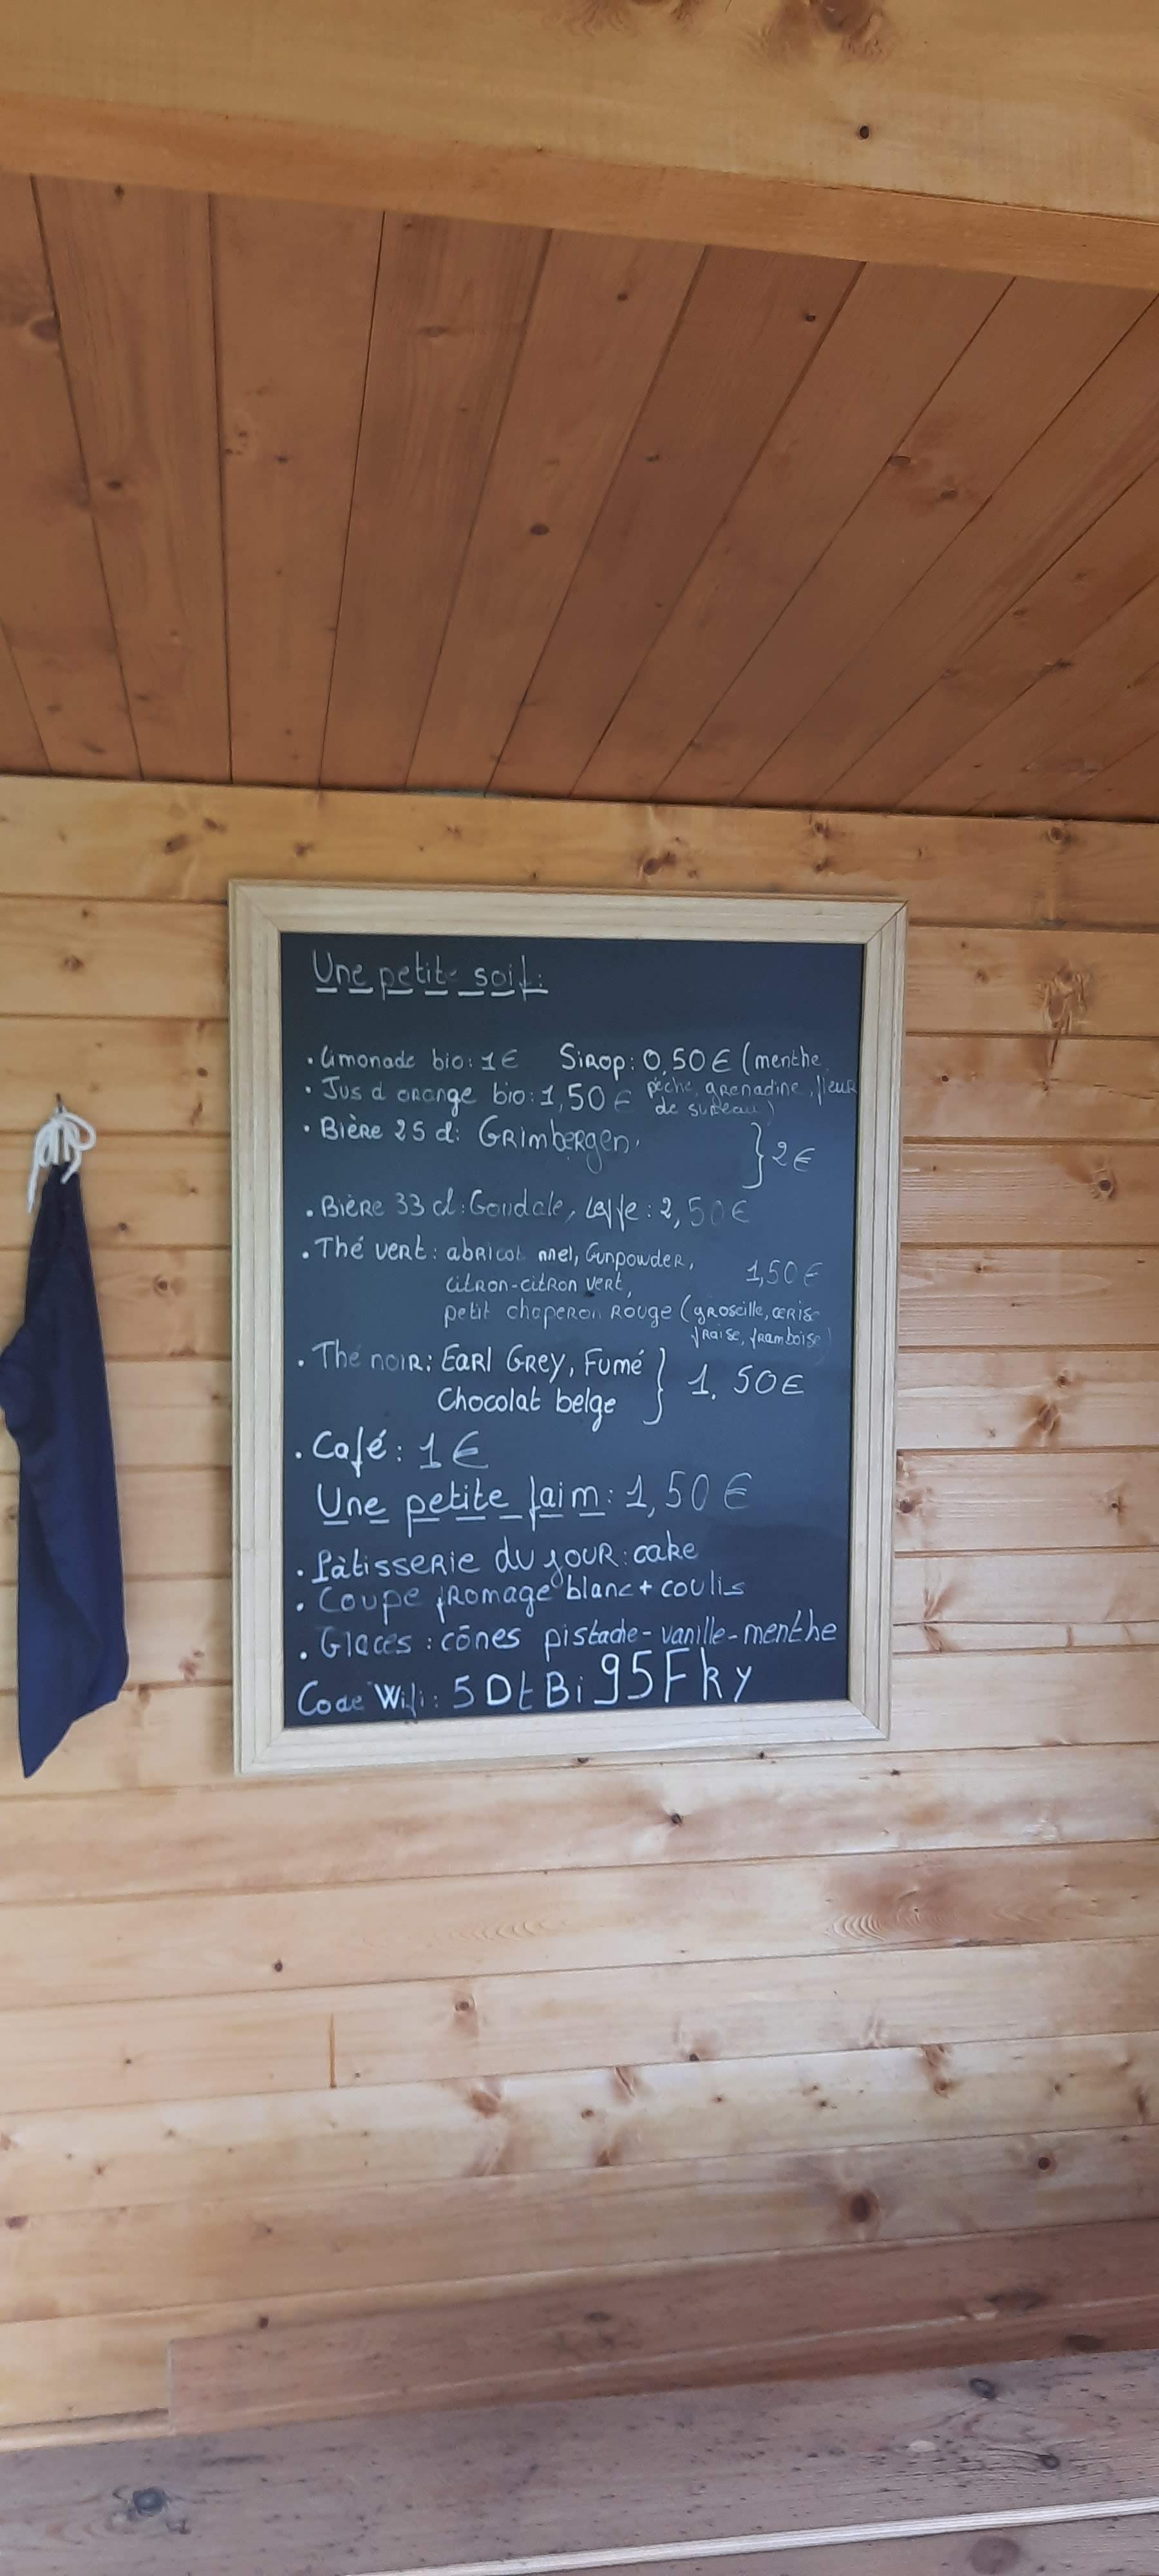 Une petite soif:
. Limonade bio: 1€ Sirop: 0,50€ (menthe,
. Jus d'orange bio: 1,50€ pêche, grenadine, fleur
de sureau)
. Bière 25 cl: Grimbergen,
} 2€
. Bière 33 cl: Goudale, Leffe: 2,50€
. Thé vert: abricot miel, Gunpowder,
citron-citron vert, 1,50€
petit chaperon rouge (groseille, ceris
fraise, framboise)
. Thé noir: Earl Grey, Fumé
Chocolat belge } 1.50€
. Café: 1€
Une petite faim: 1,50€
. Pâtisserie du jour: cake
. Coupe fromage blanc + coulis
. Glaces: cônes pistache-vanille-menthe
Code Wifi: 5DtBi95Fky